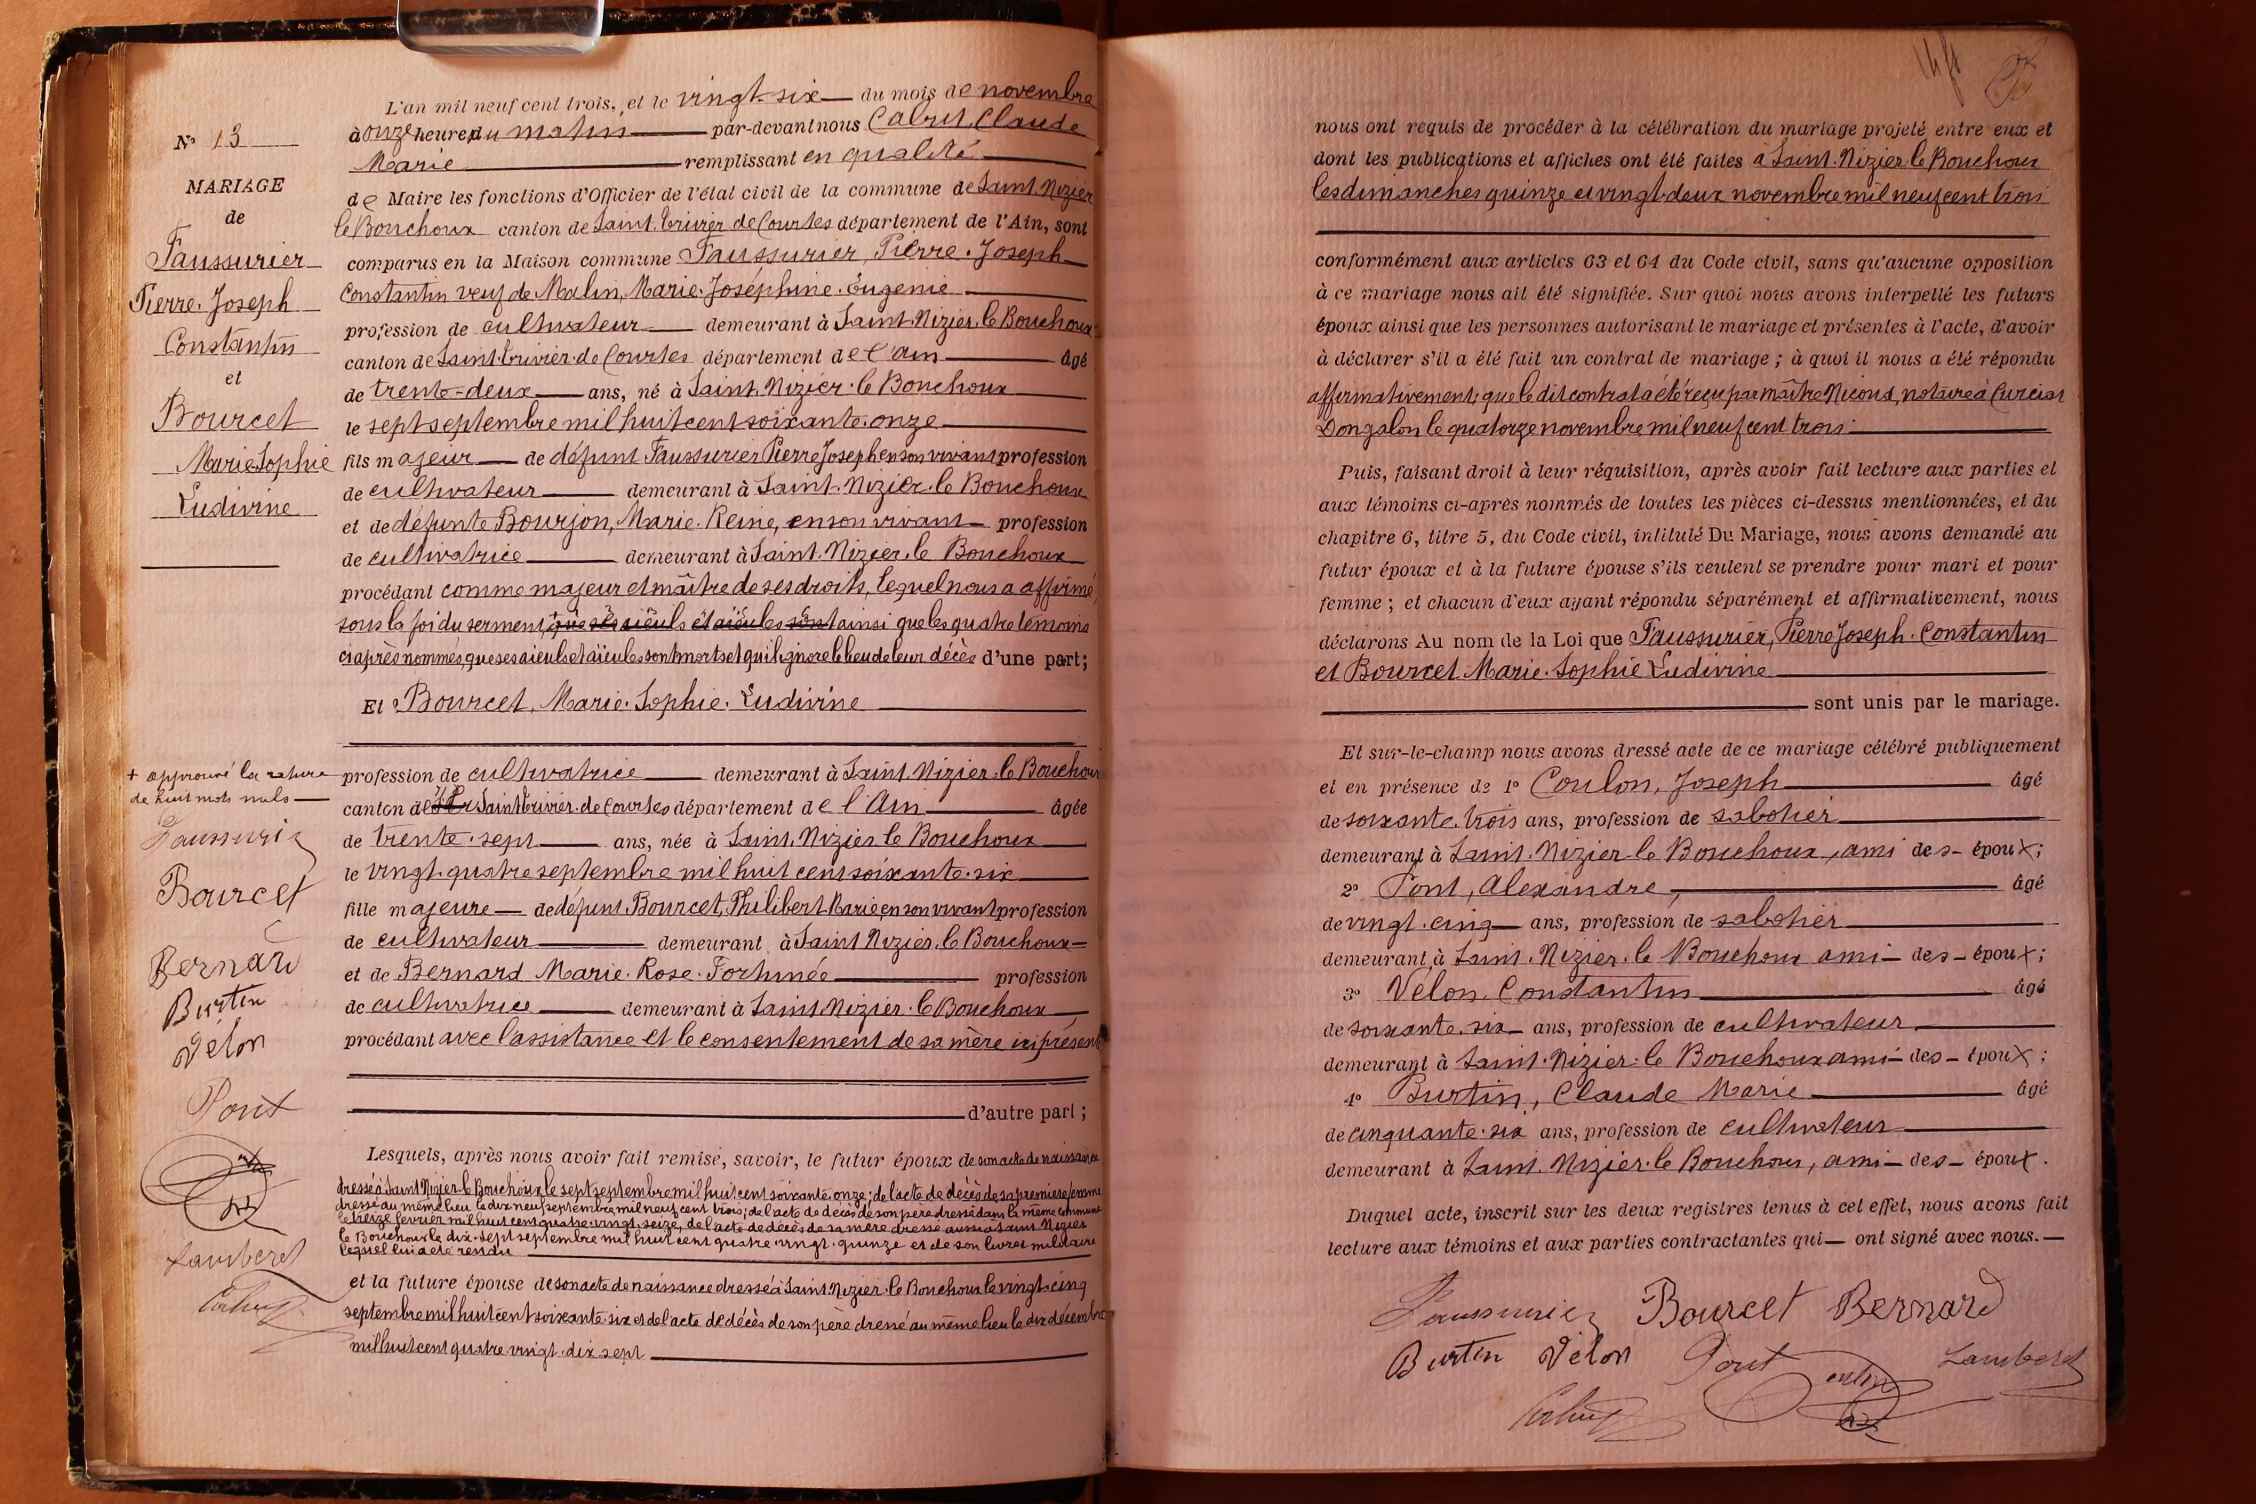 N° 13
MARIAGE
de
Faussurier
Pierre. Joseph
Constantin
et
Bourcet
Marie Sophie
Ludivine
+ approuvé la rature
de huit mots nuls
Faussurier
Bourcet
Bernard
Burtin
Vélon
Pont
Lamberet
L'an mil neuf cent trois, et le vingt-six du mois de novembre
à onze heures du matin par-devant nous Cabut, Claude
Marie remplissant en qualité
de Maire les fonctions d'Officier de l'état civil de la commune de Saint. Nizier
le Bouchoux canton de Saint. Trivier de Courtes département de l'Ain, sont
comparus en la Maison commune Faussurier, Pierre. Joseph
Constantin veuf de Malin, Marie. Joséphine. Eugenie
profession de cultivateur demeurant à Saint. Nizier. le Bouchoux
canton de Saint Trivier. de Courtes département de l'ain âgé
de trente-deux ans, né à Saint. Nizier. le Bouchoux
le sept septembre mil huit cent soixante. onze
fils majeur de défunt Faussurier Pierre Joseph en son vivant profession
de cultivateur demeurant à Saint. Nizier. le Bouchoux
et de défunte Bourjon, Marie. Reine, en son vivant profession
de cultivatrice demeurant à Saint. Nizier. le Bouchoux
procédant comme majeur et maître de ses droits, lequel nous a affirmé
sous la foi du serment, + que ses aïeuls et aïeules sont ainsi que les quatre témoins
ci après nommés, que ses aïeuls et aïeules sont morts et qu'il ignore le lieu de leur décès d'une part;
Et Bourcet, Marie. Sophie. Ludivine
profession de cultivatrice demeurant à Saint. Nizier. le Bouchoux
canton de Saint Trivier. de Courtes département de l'Ain âgée
de trente. sept ans, née à Saint. Nizier le Bouchoux
le vingt. quatre septembre mil huit cent soixante. six
fille majeure de défunt Bourcet, Philibert Marie en son vivant profession
de cultivateur demeurant à Saint Nizier. le Bouchoux
et de Bernard Marie. Rose. Fortunée profession
de cultivatrice demeurant à Saint Nizier. le Bouchoux
procédant avec l'assistance et le consentement de sa mère ici présente
d'autre part;
Lesquels, après nous avoir fait remise, savoir, le futur époux de son acte de naissance
dressé à Saint Nizier le Bouchoux le sept septembre mil huit cent soixante. onze; de l'acte de décès de sa premiere femme
dressé au même lieu le dix neuf septembre mil neuf cent trois; de l'acte de décès de son père dressé dans la même commune
le treize février mil huit cent quatre. vingt. seize, de l'acte de décès de sa mère dressé aussi à Saint Nizier
le Bouchoux le dix. sept septembre mil huit cent quatre. vingt. quinze et de son livret militaire
lequel lui a été rendu
et la future épouse de son acte de naissance dressé à Saint Nizier. le Bouchoux le vingt. cinq
septembre mil huit cent soixante six et de l'acte de décès de son père dressé au même lieu le dix décembre
mil huit cent quatre. vingt. dix sept
nous ont requis de procéder à la célébration du mariage projeté entre eux et
dont les publications et affiches ont été faites à Saint. Nizier le Bouchoux
les dimanches quinze et vingt-deux novembre mil neuf cent trois
conformément aux articles 63 et 64 du Code civil, sans qu'aucune opposition
à ce mariage nous ait été signifiée. Sur quoi nous avons interpellé les futurs
époux ainsi que les personnes autorisant le mariage et présentes à l'acte, d'avoir
à déclarer s'il a été fait un contrat de mariage; à quoi il nous a été répondu
affirmativement; que le dit contrat a été reçu par maître Nicoud, notaire à Curciat
Dongalon le quatorze novembre mil neuf cent trois
Puis, faisant droit à leur réquisition, après avoir fait lecture aux parties et
aux témoins ci-après nommés de toutes les pièces ci-dessus mentionnées, et du
chapitre 6, titre 5, du Code civil, intitulé Du Mariage, nous avons demandé au
futur époux et à la future épouse s'ils veulent se prendre pour mari et pour
femme; et chacun d'eux ayant répondu séparément et affirmativement, nous
déclarons Au nom de la Loi que Faussurier, Pierre Joseph. Constantin
et Bourcet Marie. Sophie Ludivine
sont unis par le mariage.
Et sur-le-champ nous avons dressé acte de ce mariage célébré publiquement
et en présence de 1° Coulon, Joseph âgé
de soixante. trois ans, profession de sabotier
demeurant à Saint. Nizier le Bouchoux, ami des époux;
2° Pont, Alexandre, âgé
de vingt. cinq ans, profession de sabotier
demeurant à Saint. Nizier. le Bouchoux ami des époux;
3° Vélon, Constantin âgé
de soixante. six ans, profession de cultivateur
demeurant à Saint. Nizier. le Bouchoux ami des époux;
4° Burtin, Claude Marie âgé
de cinquante. six ans, profession de cultivateur
demeurant à Saint. Nizier. le Bouchoux, ami des époux.
Duquel acte, inscrit sur les deux registres tenus à cet effet, nous avons fait
lecture aux témoins et aux parties contractantes qui ont signé avec nous.
Faussurier Bourcet Bernard
Burtin Vélon Pont Lamberet